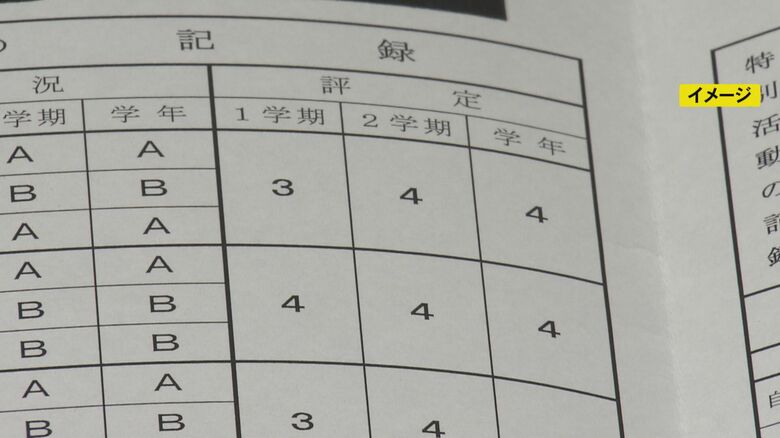 記 録
況 評 定
学期 学年 1学期 2学期 学年
A A 3 4 4
B B
A A
A A 4 4 4
B B
B B
A A 3 4
B B
特別活動の記録
イメージ